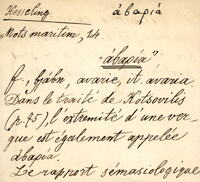 Hesseling ἀβαρία
Mots maritim, 14
"ἀβαρία"
f, avarie, it. avaria
Dans le traité de Kotsovilis
(p. 75) l'extrémité d'une ver
gue est également appelée
ἀβαρία.
Le rapport sémasiologique